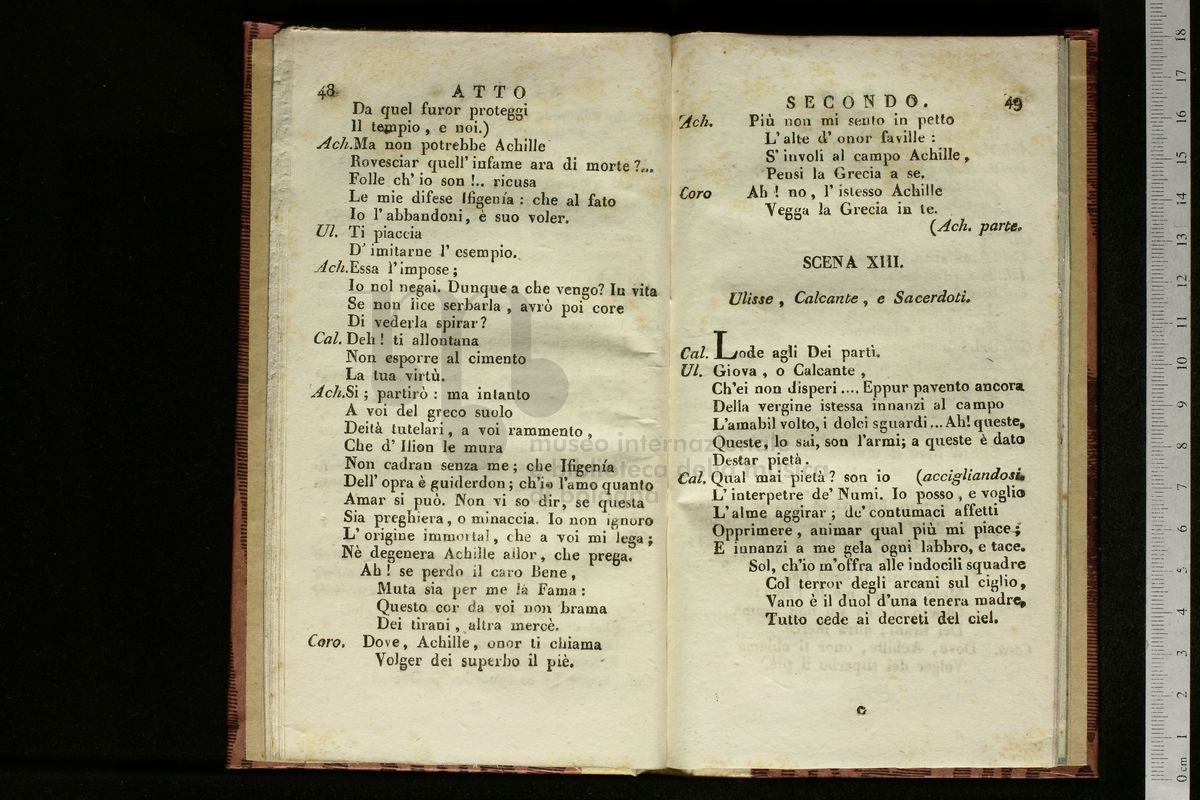 48 ATTO
Da quel furor proteggi
Il tempio, e noi.)
Ach. Ma non potrebbe Achille
Rovesciar quell' infame ara di morte?...
Folle ch' io son!.. ricusa
Le mie difese Ifigenía: che al fato
Io l' abbandoni, è suo voler.
Ul. Ti piaccia
D' imitarne l' esempio.
Ach. Essa l' impose;
Io nol negai. Dunque a che vengo? In vita
Se non lice serbarla, avrò poi core
Di vederla spirar?
Cal. Deh! ti allontana
Non esporre al cimento
La tua virtù.
Ach. Si; partirò: ma intanto
A voi del greco suolo
Deità tutelari, a voi rammento,
Che d' Ilion le mura
Non cadran senza me; che Ifigenía
Dell' opra è guiderdon; ch'io l'amo quanto
Amar si può. Non vi so dir, se questa
Sia preghiera, o minaccia. Io non ignoro
L' origine immortal, che a voi mi lega;
Nè degenera Achille allor, che prega.
Ah! se perdo il caro Bene,
Muta sia per me la Fama:
Questo cor da voi non brama
Dei tirani, altra mercè.
Coro. Dove, Achille, onor ti chiama
Volger dei superbo il piè.
SECONDO. 49
Ach. Più non mi sento in petto
L' alte d' onor faville:
S' involi al campo Achille,
Pensi la Grecia a se.
Coro Ah! no, l' istesso Achille
Vegga la Grecia in te.
(Ach. parte.
SCENA XIII.
Ulisse, Calcante, e Sacerdoti.
Cal. Lode agli Dei partì.
Ul. Giova, o Calcante,
Ch'ei non disperi.... Eppur pavento ancora
Della vergine istessa innanzi al campo
L'amabil volto, i dolci sguardi... Ah! queste,
Queste, lo sai, son l'armi; a queste è dato
Destar pietà.
Cal. Qual mai pietà? son io (accigliandosi.
L' interpetre de' Numi. Io posso, e voglio
L' alme aggirar; de' contumaci affetti
Opprimere, animar qual più mi piace;
E innanzi a me gela ogni labbro, e tace.
Sol, ch'io m'offra alle indocili squadre
Col terror degli arcani sul ciglio,
Vano è il duol d'una tenera madre,
Tutto cede ai decreti del ciel.
museo internazionale
biblioteca della musica
di bologna
0 cm 1 2 3 4 5 6 7 8 9 10 11 12 13 14 15 16 17 18